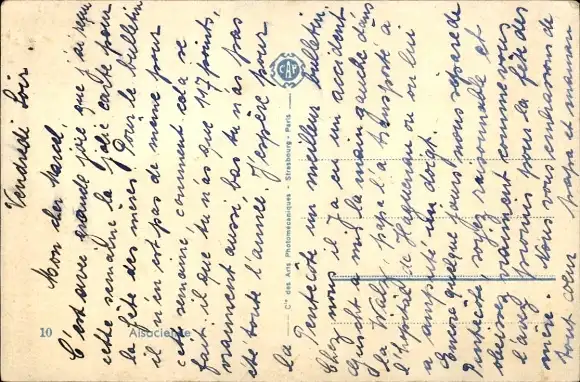 Vendredi Soir.
Mon cher Marcel,
C'est avec grande joie que j'ai reçu
cette semaine la jolie carte pour
la fête des mères. Pour le bulletin
il n'en est pas de même pour
cette semaine, comment cela se
fait-il que tu n'as que 117 points,
vraiment aussi bas tu n'as pas
été toute l'année. J'espère pour
la Pentecôte un meilleur bulletin.
Chez nous il y a eu un accident
a mis la main gauche dans
la papa l'a transporté à
l'hôpital de Haguenau où on lui
a amputé un doigt.
Encore quelque jours nous sépare de
Pentecôte, soyez raisonnable et
obeissez vraiment comme vous
l'avez promis pour la fête des
mère. Nous vous embrassons de
tout cœur papa et maman
CAP
Cie des Arts Photomécaniques - Strasbourg - Paris
10 Alsacienne